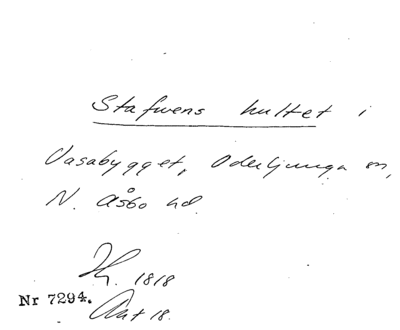 Stafwens hultet i
Vasabygget, Oderljunga sn,
N. Åsbo hd.
Kr. 1818
Nr 7294.
Akt 18.